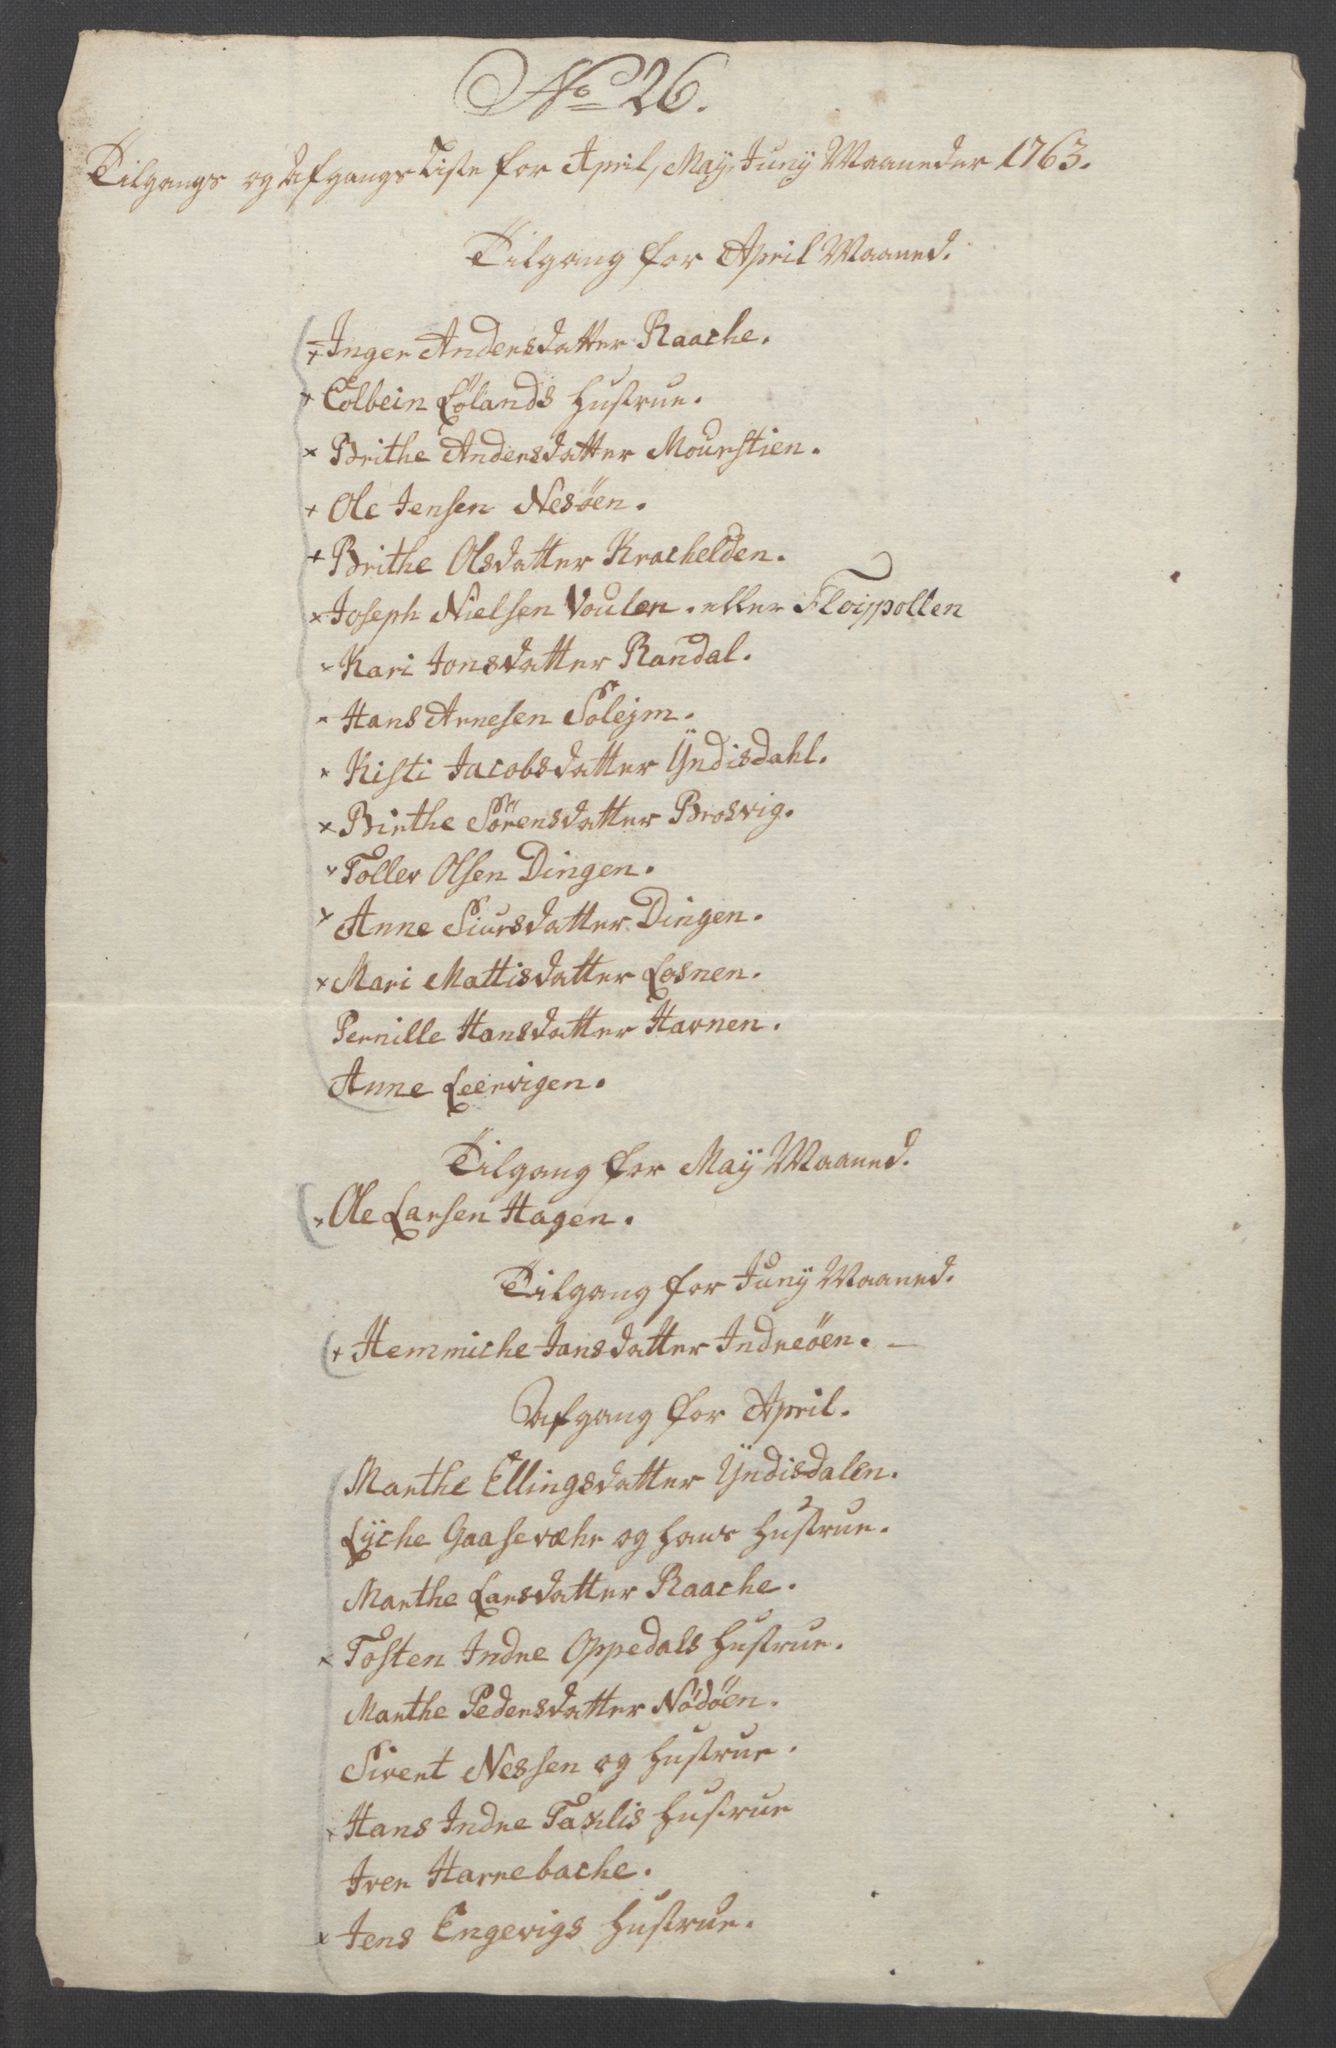 No 26.
Tilgangs og Afgangs Liste for April, Maÿ, Junÿ Maaneder 1763.
Tilgang for April Maaned.
× Inger Andersdatter Raache.
× Colbein Lølands Hustrue.
× Brithe Andersdatter Mourstien.
× Ole Jensen Nesöen.
× Brithe Olsdatter Krachelden.
× Joseph Nielsen Voulen. eller Floijpollen
× Kari Jonsdatter Randal.
× Hans Arnesen Solejm.
× Kisti Jacobsdatter Ÿndisdahl.
× Birthe Sörensdatter Brosvig.
× Toller Olsen Dingen.
× Anne Siursdatter Dingen.
× Mari Mattisdatter Losnen.
Pernille Hansdatter Havnen.
Anne Leervigen.
Tilgang for Maÿ Maaned.
× Ole Larsen Hagen.
Tilgang for Junÿ Maaned.
× Hemmiche Jansdatter Indreöen. –
Afgang for April.
Marthe Ellingsdatter Ÿndisdalen.
Lÿche Gaasevæhr og hans Hustrue.
Marthe Larsdatter Raache.
× Tosten Indre Oppedals Hustrue.
Marthe Pedersdatter Nödöen.
Sivert Nessen og Hustrue.
× Hans Indre Taklis Hustrue
Iver Harrebache.
× Jens Engevigs Hustrue.